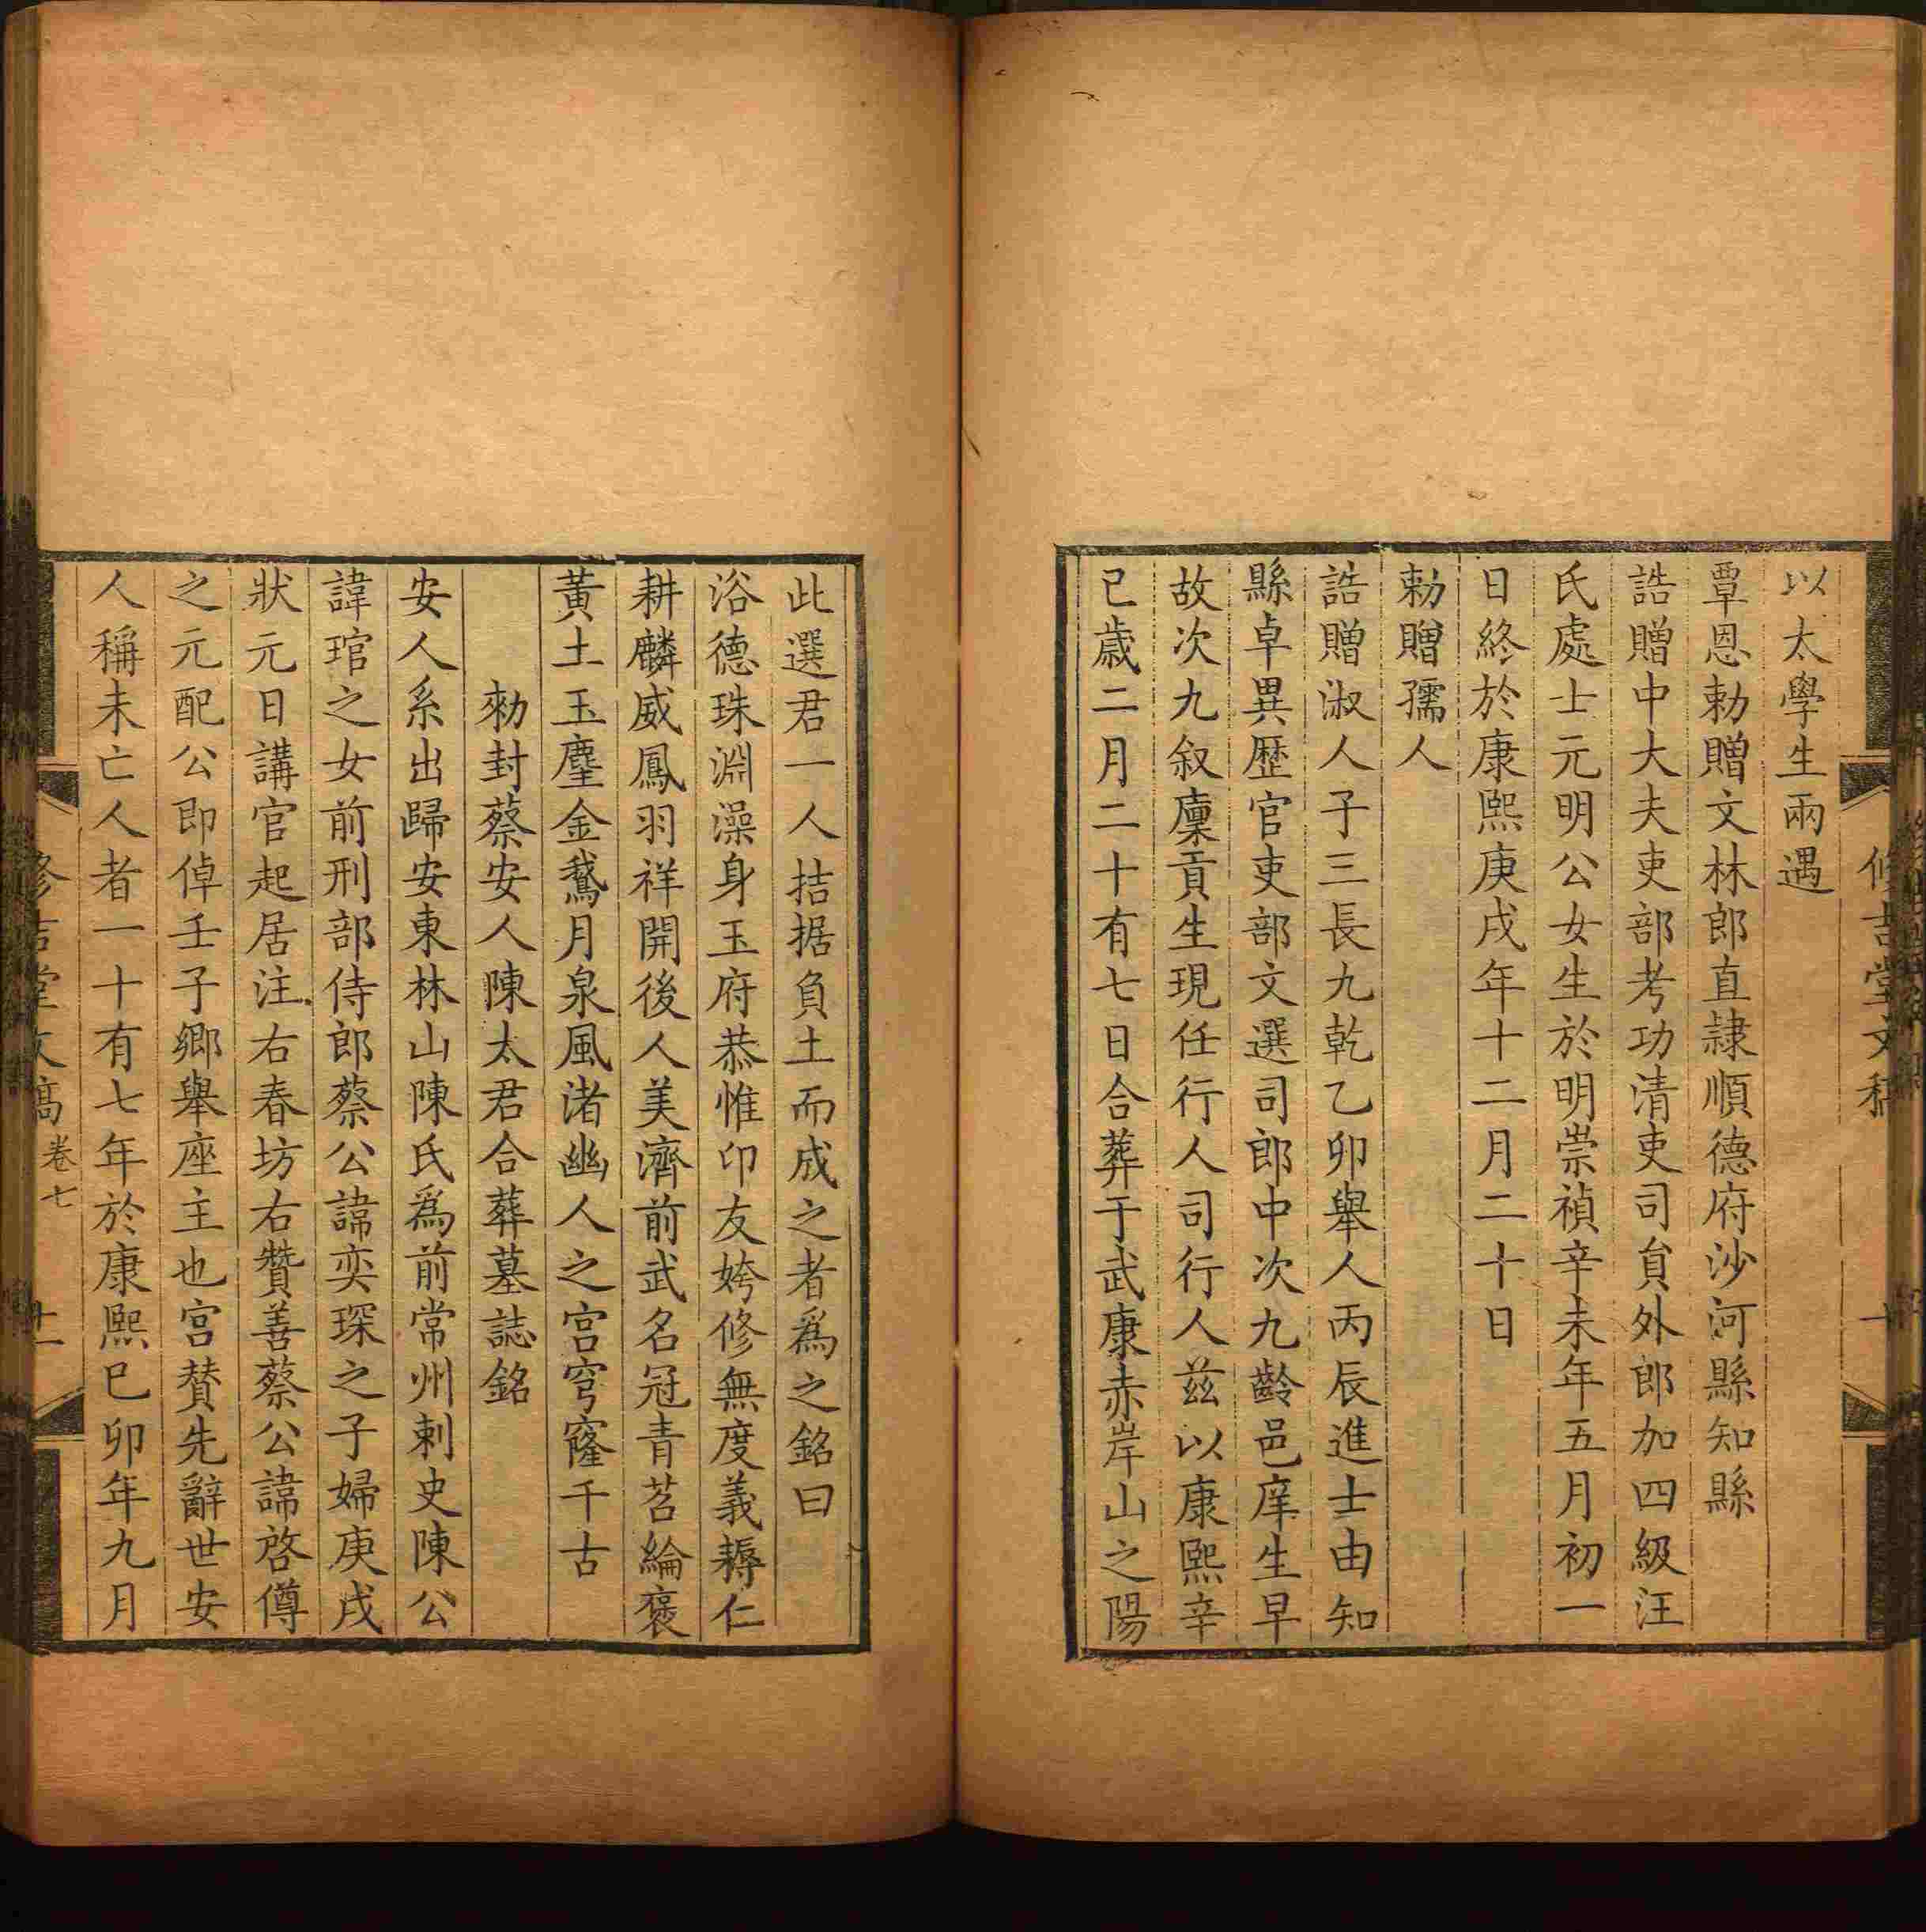 修吉堂文稿
十
以太學生兩遇
覃恩勅贈文林郎直隸順德府沙河縣知縣
誥贈中大夫吏部考功清吏司貟外郎加四級汪
氏處士元明公女生於明崇禎辛未年五月初一
日終於康熙庚戌年十二月二十日
勅贈孺人
誥贈淑人子三長九乾乙卯舉人丙辰進士由知
縣卓異歷官吏部文選司郎中次九齡邑庠生早
故次九叙廩貢生現任行人司行人兹以康熙辛
巳歳二月二十有七日合葬于武康赤岸山之陽
此選君一人拮据負土而成之者爲之銘曰
浴德珠淵澡身玉府恭惟卬友姱修無度義耨仁
耕麟威鳳羽祥開後人美濟前武名冠青茗綸褒
黃土玉麈金鵞月泉風渚幽人之宮穹窿千古
勑封蔡安人陳太君合葬墓誌銘
安人系出歸安東林山陳氏爲前常州刺史陳公
諱琯之女前刑部侍郎蔡公諱奕琛之子婦庚戌
狀元日講官起居注右春坊右贊善蔡公諱啓僔
之元配公即倬壬子鄉舉座主也宮賛先辭世安
人稱未亡人者一十有七年於康熙巳卯年九月
修吉堂文稿 卷七
十一